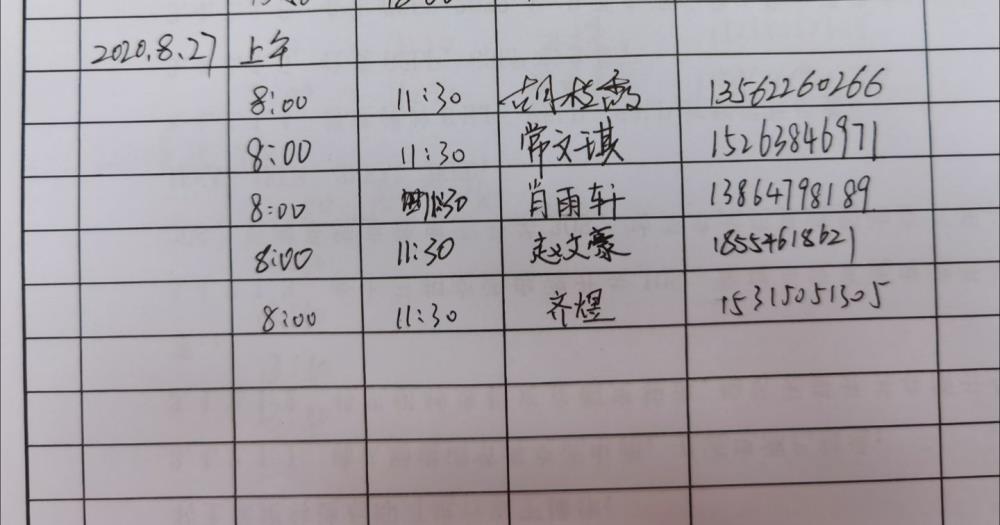 2020.8.27 上午
8:00 11:30 胡桂霞 13562260266
8:00 11:30 常文琪 15263846971
8:00 11:30 肖雨轩 13864798189
8:00 11:30 赵文豪 18554618621
8:00 11:30 齐煜 15315051305